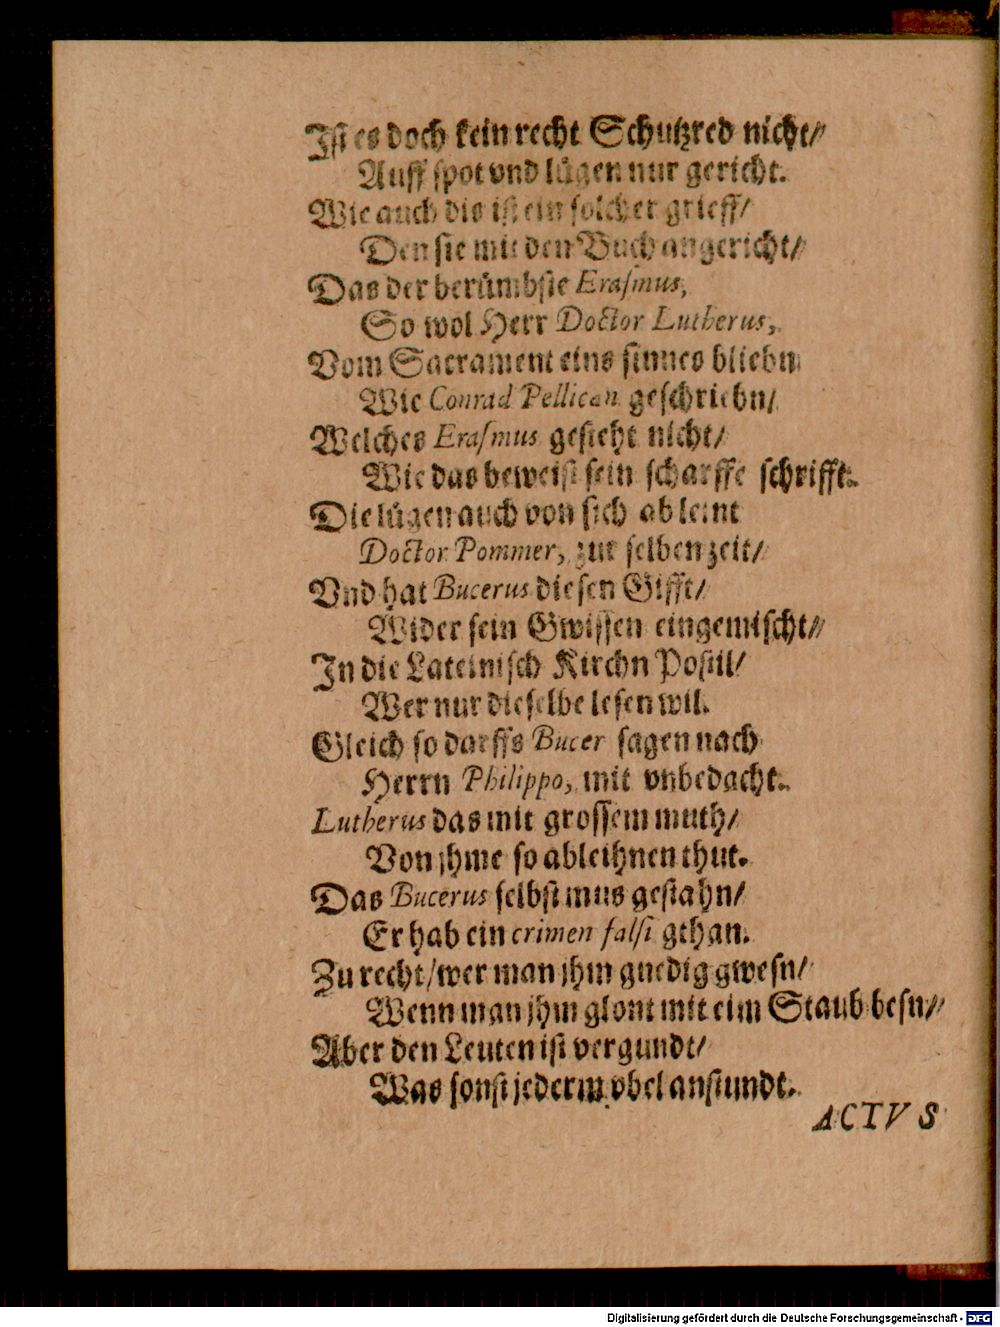 Iſt es doch kein recht Schutzred nicht/
Auff ſpot vnd lügen nur gericht.
Wie auch dis iſt ein ſolcher grieff/
Den ſie mit den Buch angericht/
Das der berümbſte Eraſmus,
So wol Herr Doctor Lutherus,
Vom Sacrament eins ſinnes bliebn
Wie Conrad Pellican geſchriebn/
Welches Eraſmus geſteht nicht/
Wie das beweiſt ſein ſcharffe ſchrifft.
Die lügen auch von ſich ableint
Doctor Pommer, zur ſelben zeit/
Vnd hat Bucerus dieſen Gifft/
Wider ſein Gwiſſen eingemiſcht/
In die Lateiniſch Kirchn Poſtil/
Wer nur dieſelbe leſen wil.
Gleich ſo darffs Bucer ſagen nach
Herrn Philippo, mit vnbedacht.
Lutherus das mit groſſem muth/
Von jhme ſo ableihnen thut.
Das Bucerus ſelbſt mus geſtahn/
Er hab ein crimen falſi gthan.
Zu recht/wer man jhm gnedig gweſn/
Wenn man jhm glont mit eim Staubbeſn/
Aber den Leuten iſt vergundt/
Was ſonſt jederm vbel anſtundt.
ACTVS
Digitalisierung gefördert durch die Deutsche Forschungsgemeinschaft - DFG